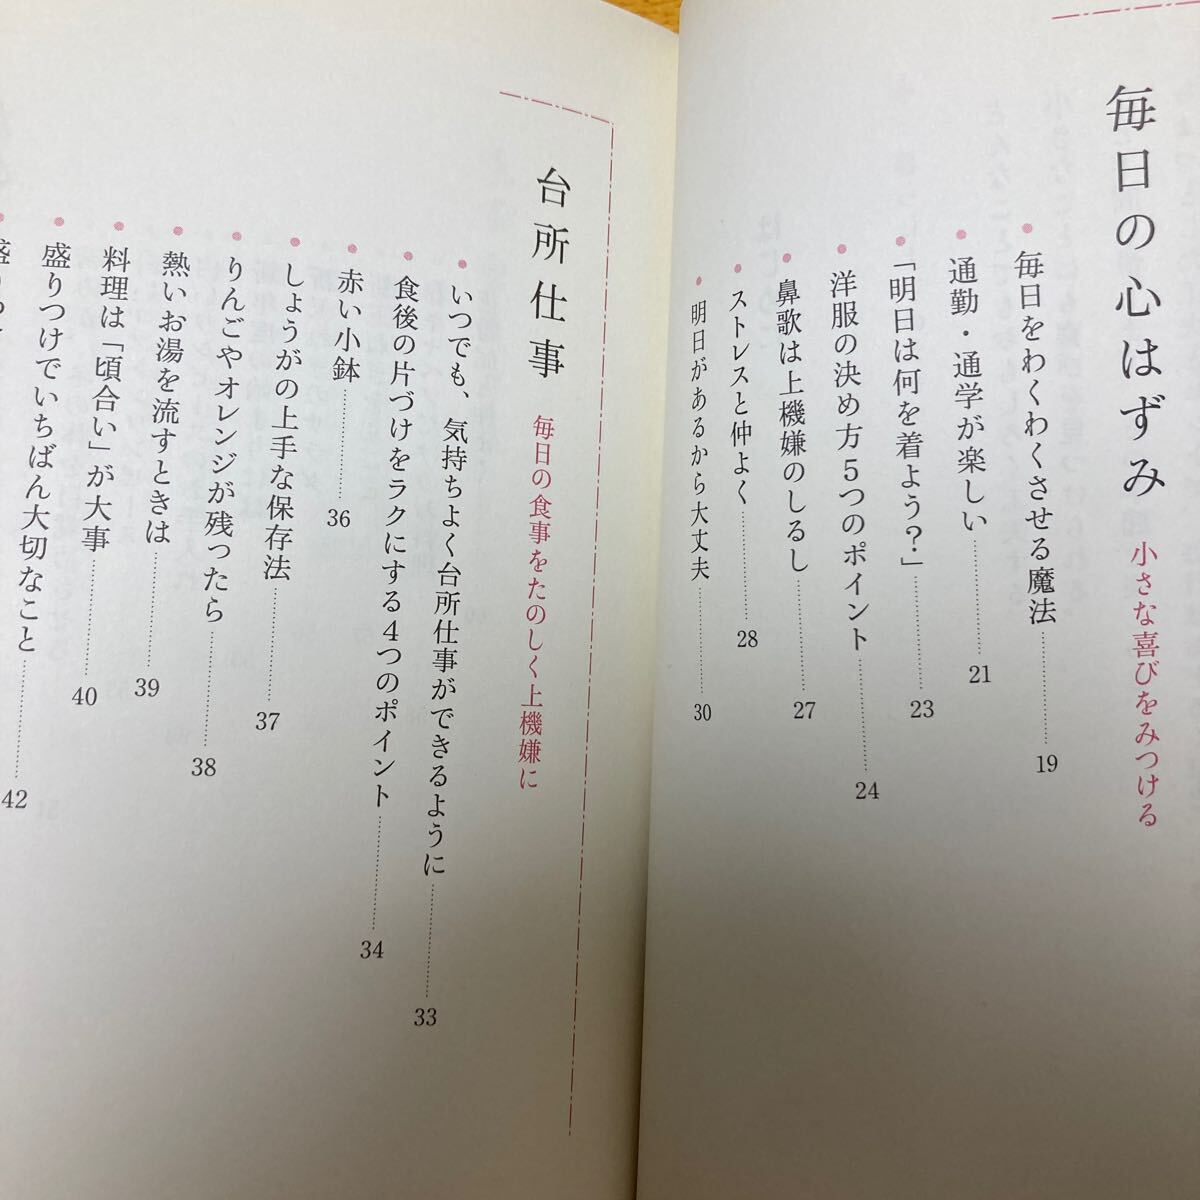 毎日の心はずみ 小さな喜びをみつける
毎日をわくわくさせる魔法 19
通勤・通学が楽しい 21
「明日は何を着よう?」 23
洋服の決め方5つのポイント 24
鼻歌は上機嫌のしるし 27
ストレスと仲よく 28
明日があるから大丈夫 30
台所仕事 毎日の食事をたのしく上機嫌に
いつでも、気持ちよく台所仕事ができるように 33
食後の片づけをラクにする4つのポイント 34
赤い小鉢 36
しょうがの上手な保存法 37
りんごやオレンジが残ったら 38
熱いお湯を流すときは 39
料理は「頃合い」が大事 40
盛りつけでいちばん大切なこと 42